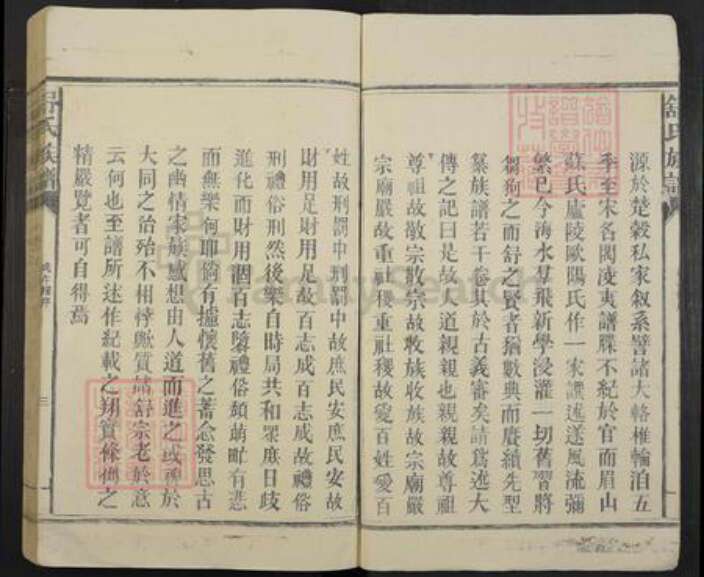 舒氏族譜
源於楚穀私家叙系譬諸大輅椎輪洎五
季至宋名閥淩夷譜牒不紀於官而眉山
蘇氏廬陵歐陽氏作一家譔述遂風流彌
繁已今海水羣飛新學浸灌一切舊習將
芻狗之而舒之賢者猶數典而賡續先型
纂族譜若干卷其於古義審矣請爲述大
傳之記曰是故人道親親也親親故尊祖
尊祖故敬宗敬宗故收族收族故宗廟嚴
宗廟嚴故重社稷重社稷故愛百姓愛百
姓故刑罰中刑罰中故庶民安庶民安故
財用足財用足故百志成百志成故禮俗
刑禮俗刑然後樂自時局共和眾庶日歧
進化而財用涸百志隳禮俗頹萌甿有悲
而無樂何耶獨有攄懷舊之蓄念發思古
之幽情家族感想由人道而進之或碑於
大同之治殆不相悖歟質諸舒宗老於意
云何也至譜所述作紀載之翔實條例之
精嚴覽者可自得焉
舒氏族譜
三
FamilySearch